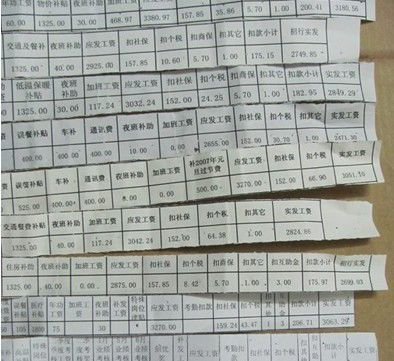 年功工资 物价补贴 夜班补助 加班工资 应发工资 扣社保 扣个税 扣商保 扣其它 扣款小计 实发工资
1325.00 30.00 468.97 3380.97 157.85 35.86 5.70 1.00 200.41 3180.56
交通及餐补 夜班补助 应发工资 扣社保 扣个税 扣商保 扣其它 扣款小计 招行实发
1325.00 40.00 2925.00 157.85 10.60 5.70 1.00 175.15 2749.85
低温保暖补贴 夜班补助 加班工资 应发工资 扣社保 扣个税 扣商保 扣其它 扣款小计 实发工资
1325.00 30.00 117.24 3032.24 152.00 24.25 5.70 1.00 182.95 2849.29
误餐补贴 车补 通讯费 夜班补助 加班工资 应发工资 扣社保 扣个税 扣其它 实发工资
400.00 400.00 400.00 10.00 0.00 2655.00 152.00 30.70 1.00 2471.30
误餐补贴 车补 通讯费 夜班补助 加班工资 补2007年元旦过节费 应发工资 扣社保 扣个税 实发工资
525.00 400.00 400.00 8.00 0.00 500.00 3270.00 152.00 66.90 3051.10
交通餐费补贴 夜班补助 加班工资 应发工资 扣社保 扣个税 扣其它 实发工资
1325.00 40.00 117.24 3042.24 152.00 64.38 1.00 2824.86
住房补助 夜班补助 加班工资 应发工资 扣社保 扣个税 扣商保 扣其它 扣互助金 扣款小计 招行实发
1325.00 40.00 0.00 2875.00 157.85 8.42 5.70 1.00 3.00 175.97 2699.03
误餐补贴 医疗补贴 年功工资 加班工资 夜班补助 补发工资 特殊岗位 应发工资 考勤扣款 扣社保 扣个税 扣其它 扣互助金 扣款小计 实发工资
105 1800 75 30 3270.00 159.24 43.47 1 3 206.71 3063.29